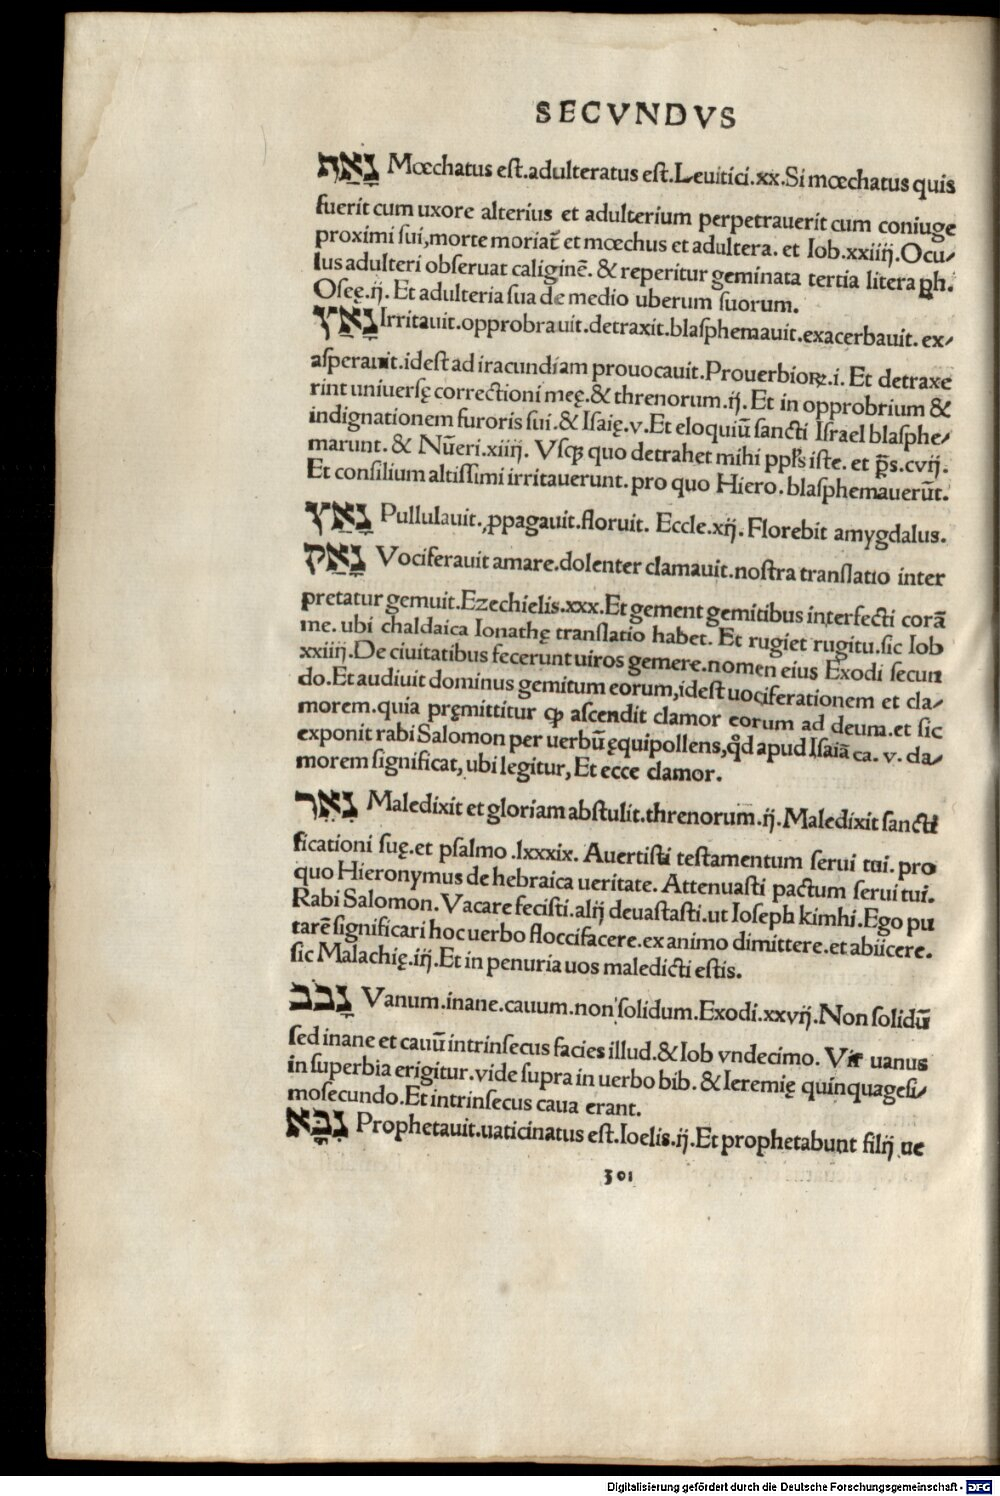 SECVNDVS
נָאַף Mœchatus eſt.adulteratus eſt.Leuitici.xx.Si mœchatus quis
fuerit cum uxore alterius et adulterium perpetrauerit cum coniuge
proximi ſui,morte moriat᷑ et mœchus et adultera. et Iob.xxiiij.Ocu⸗
lus adulteri obſeruat caliginē. & reperitur geminata tertia litera ꝑh.
Oſeę.ij. Et adulteria ſua de medio uberum ſuorum.
נָאַץ Irritauit.opprobrauit.detraxit.blaſphemauit.exacerbauit. ex⸗
aſperauit.ideſt ad iracundiam prouocauit.Prouerbioꝝ.i. Et detraxe
rint uniuerſę correctioni meę.& threnorum.ij. Et in opprobrium &
indignationem furoris ſui.& Iſaię.v.Et eloquiū ſancti Iſrael blaſphe⸗
marunt. & Nūeri.xiiij. Vſqꝫ quo detrahet mihi ppl̄s iſte. et p̄s.cvij.
Et conſilium altiſſimi irritauerunt.pro quo Hiero.blaſphemauerūt.
נָאַץ Pullulauit.ꝓpagauit.floruit. Eccle.xij.Florebit amygdalus.
נָאַק Vociferauit amare.dolenter clamauit.noſtra tranſlatio inter
pretatur gemuit.Ezechielis.xxx.Et gement gemitibus interfecti corā
me. ubi chaldaica Ionathę tranſlatio habet. Et rugiet rugitu.ſic Iob
xxiiij.De ciuitatibus fecerunt uiros gemere.nomen eius Exodi ſecun
do.Et audiuit dominus gemitum eorum,ideſt uociferationem et cla⸗
morem.quia pręmittitur ꝙ aſcendit clamor eorum ad deum.et ſic
exponit rabi Salomon per uerbū ęquipollens,qd̄ apud Iſaiā ca. v. cla⸗
morem ſignificat,ubi legitur,Et ecce clamor.
נִאֵר Maledixit et gloriam abſtulit.threnorum.ij.Maledixit ſancti
ficationi ſuę.et pſalmo.lxxxix. Auertiſti teſtamentum ſerui tui. pro
quo Hieronymus de hebraica ueritate. Attenuaſti pactum ſerui tui.
Rabi Salomon.Vacare feciſti.alij deuaſtaſti.ut Ioſeph kimhi.Ego pu
tarē ſignificari hoc uerbo floccifacere.ex animo dimittere.et abiicere.
ſic Malachię.iij.Et in penuria uos maledicti eſtis.
נָבַב Vanum.inane.cauum.non ſolidum.Exodi.xxvij.Non ſolidū
ſed inane et cauū intrinſecus facies illud.& Iob vndecimo. Vir uanus
in ſuperbia erigitur.vide ſupra in uerbo bib. & Ieremię quinquageſi⸗
moſecundo.Et intrinſecus caua erant.
נִבָּא Prophetauit.uaticinatus eſt.Ioelis.ij.Et prophetabunt filij ue
301
Digitalisierung gefördert durch die Deutsche Forschungsgemeinschaft - DFG